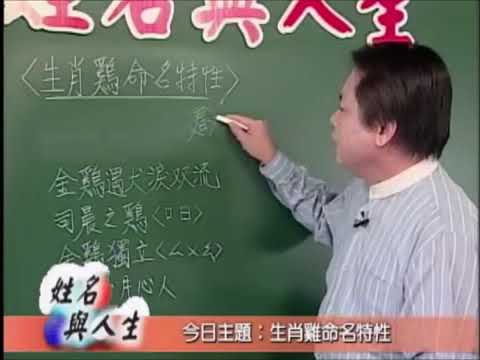 姓名與人生
〈生肖鷄命名特性〉
金鷄遇犬淚双流
司晨之鷄〈口日〉
金鷄獨立〈ㄙㄨ幺〉
月心人
姓名
與人生
今日主題：生肖雞命名特性